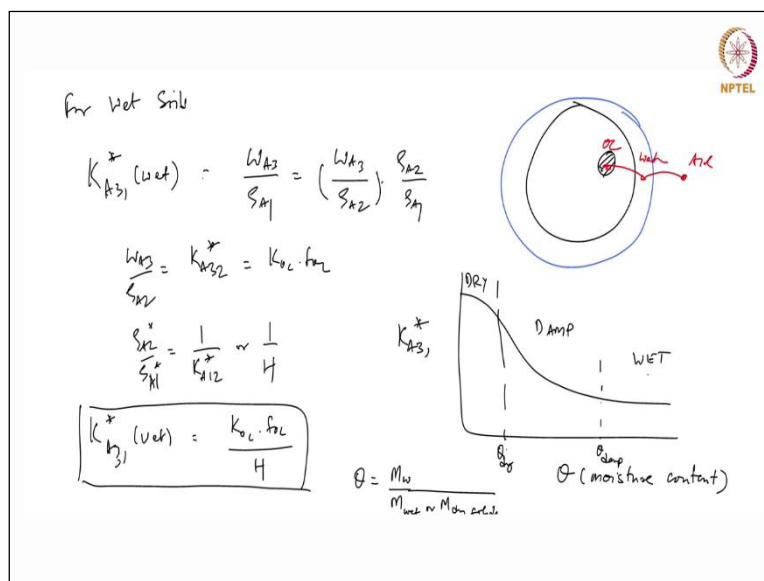 NPTEL
For Wet Soils
K*A31 (wet) = WA3/ρA1 = (WA3/ρA2) · ρA2/ρA1
WA3/ρA2 = K*A32 = Koc · foc
ρ*A2/ρ*A1 = 1/K*A12 or 1/H
K*A31 (wet) = Koc · foc / H
OC
Water
Air
K*A31
DRY
DAMP
WET
θdry
θdamp
θ (moisture content)
θ = Mw / Mwet or Mdry solids